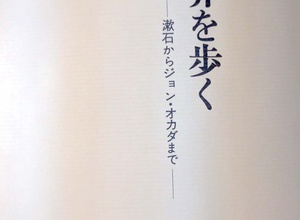 を歩く
——漱石からジョン・オカダまで——